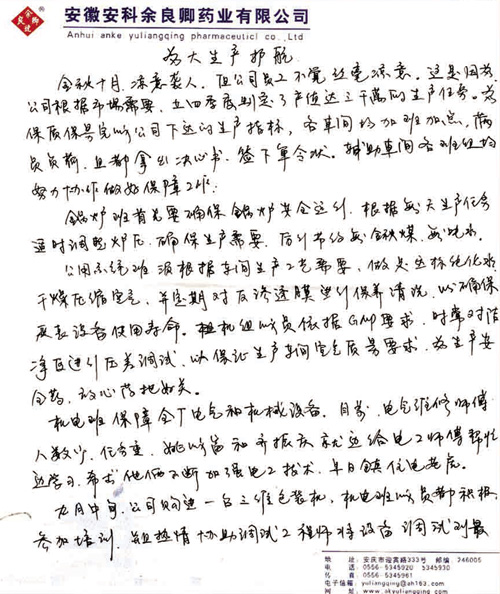 安徽安科余良卿药业有限公司
Anhui anke yuliangqing pharmaceuticl co.,Ltd
为大生产护航
金秋十月,凉意袭人,但公司员工不觉丝毫凉意。这是因为
公司根据市场需要,在四季度制定了产值达三千万的生产任务。为
保质保量完成公司下达的生产指标,各车间均加班加点,满
员负荷,且都拿出决心书,签下军令状。辅助车间各班组均
努力协作做好保障工作。
锅炉班首先要确保锅炉安全运行,根据每天生产任务
适时调整炉压,确保生产需要,厉行节约每一铲煤,每一吨水。
公用系统班 根据车间生产工艺需要,做足达标纯化水
干燥压缩空气,并定期对反渗透膜进行保养清洗,以确保
设备使用寿命。 组成员依据GMP要求,时常对洁
净区进行压差调试,以保证生产车间空气质量要求,为生产安
全药,放心药把好关。
机电班保障全厂电气和机械设备。目前,电气维修师傅
人数少,任务重,姚 和 振庆就近给电工师傅
学习,希 他们不断加强电工技术,早日
九月中旬,公司购进一台三维包装机,机电班成员都积极
参加培训,且热情协助调试工程师将设备调试到最
地 址:安庆市迎宾路333号 邮编:246005
电 话:0556-5345920 5345930
传 真:0556-5345961
电子信箱:yuliangqing@ah163.com
网 址:www.akyuliangqing.com